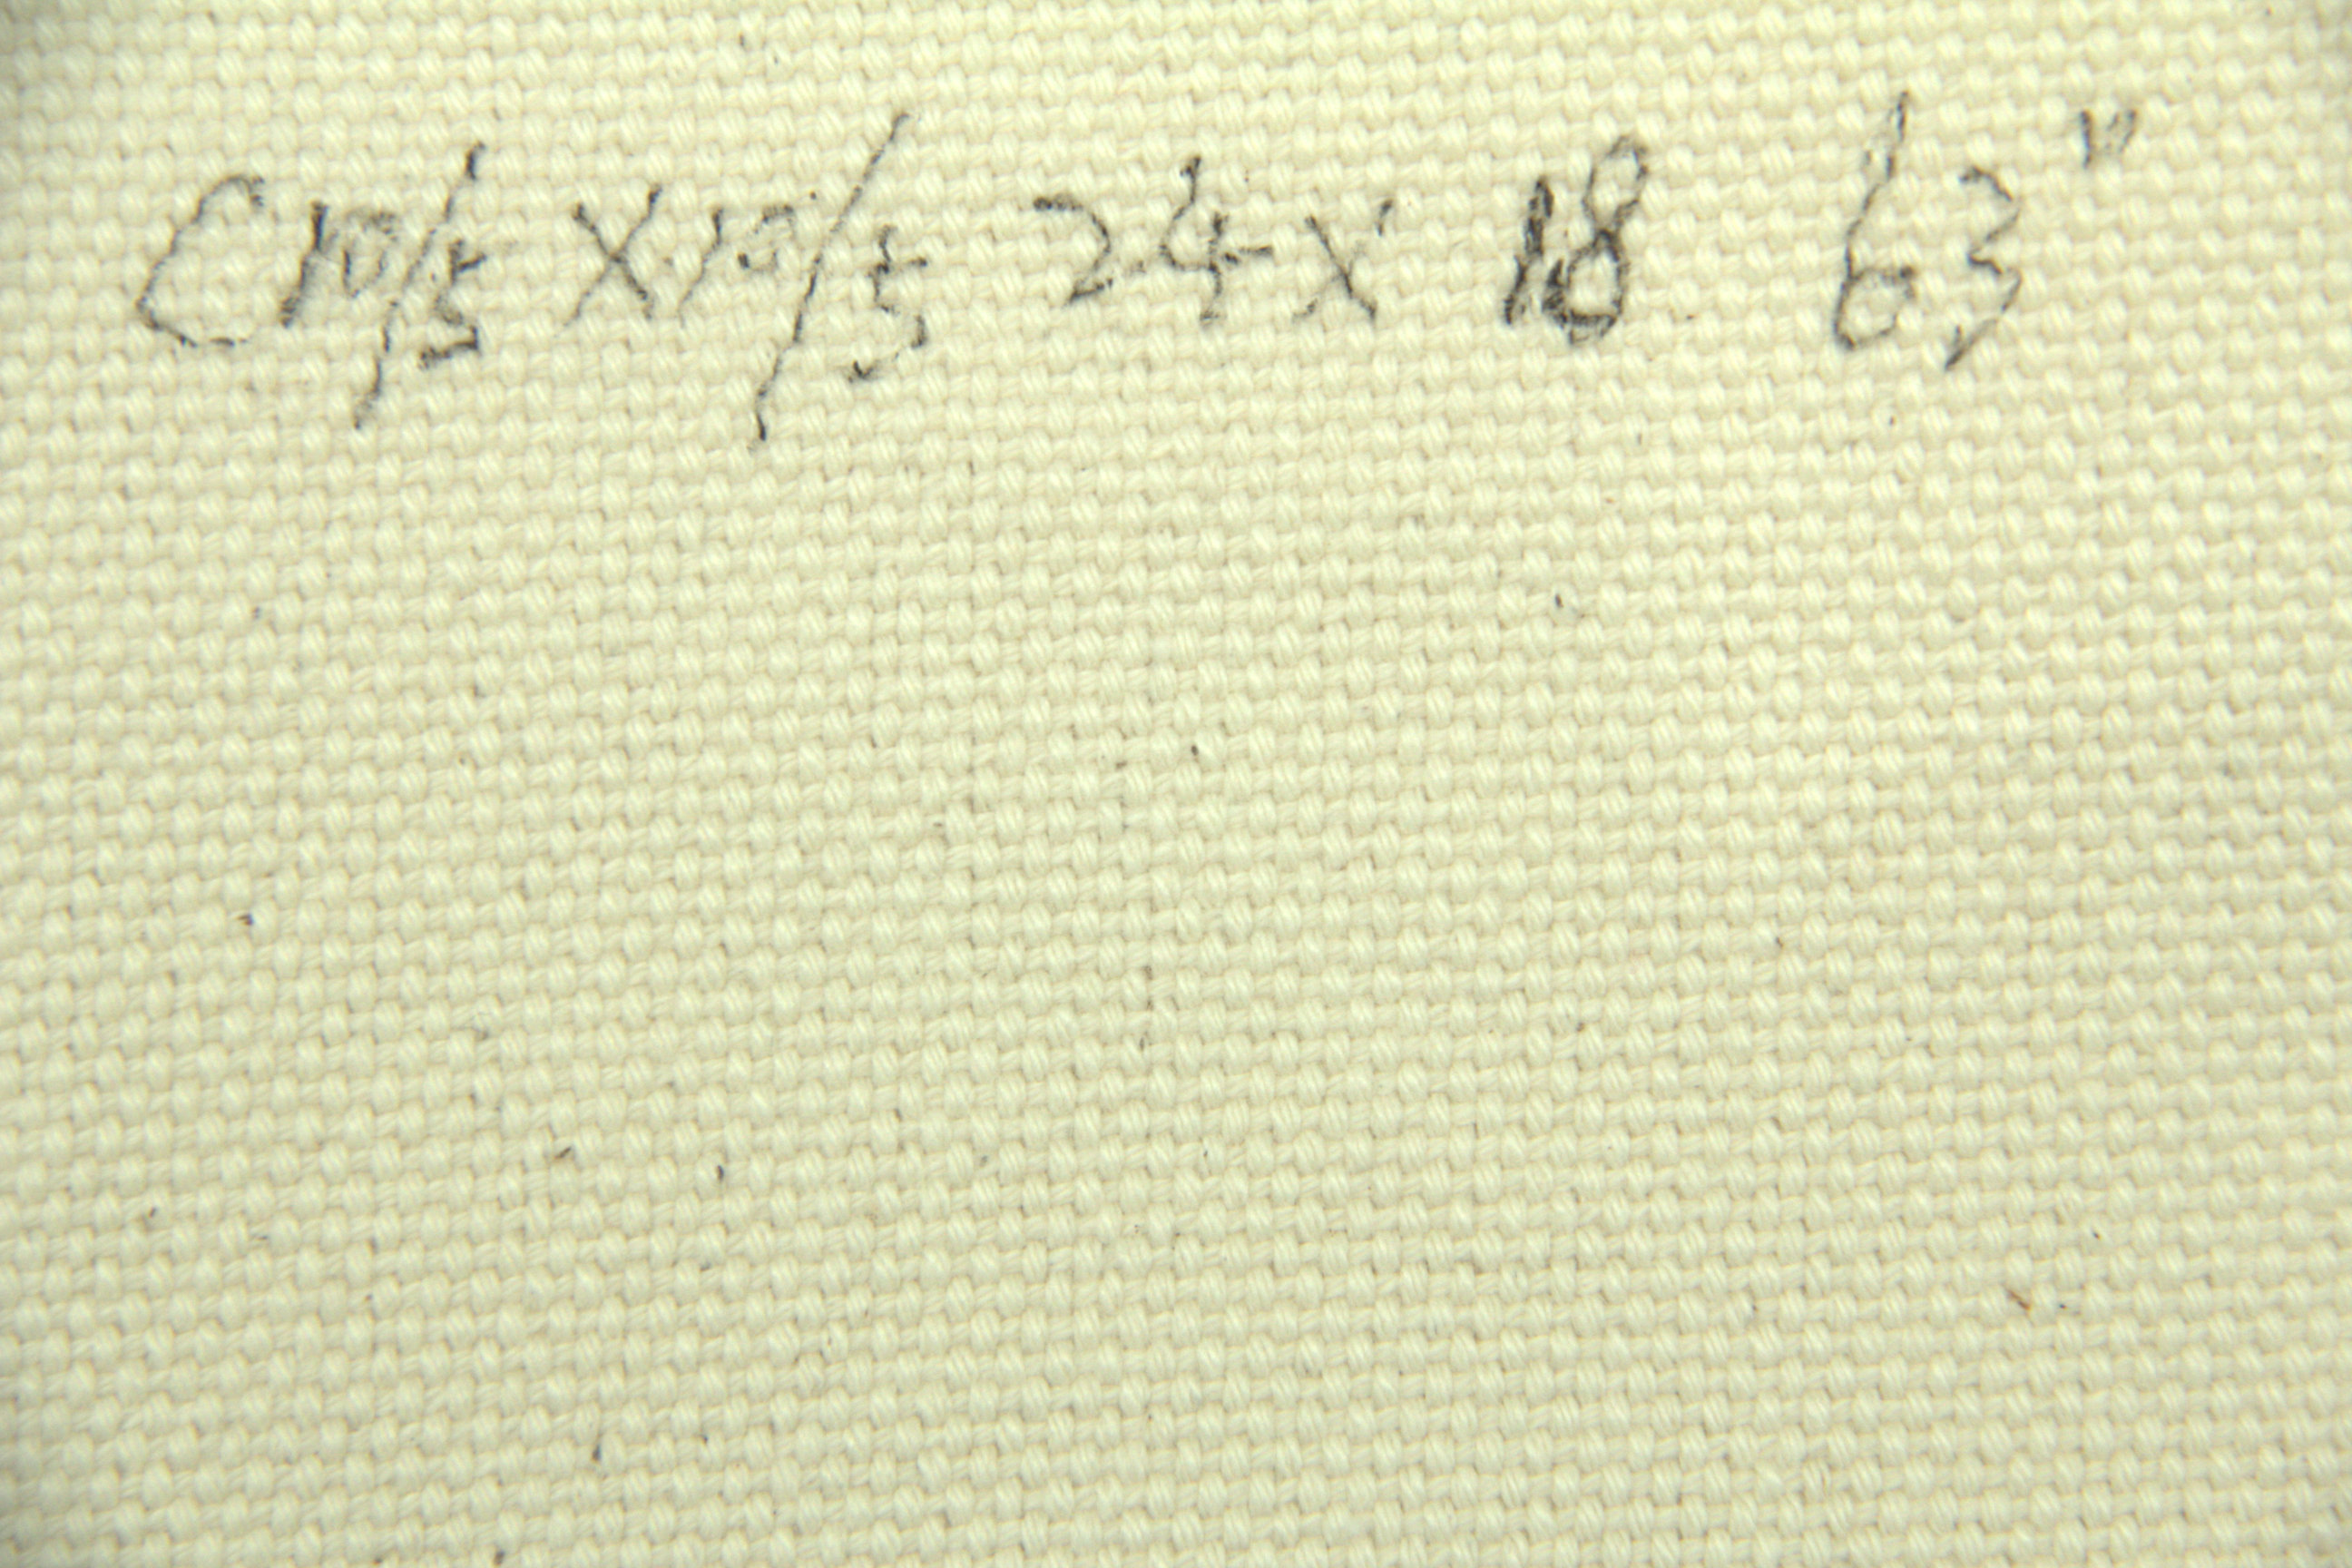 C 10/5 X 10/5 24 X 18 63"